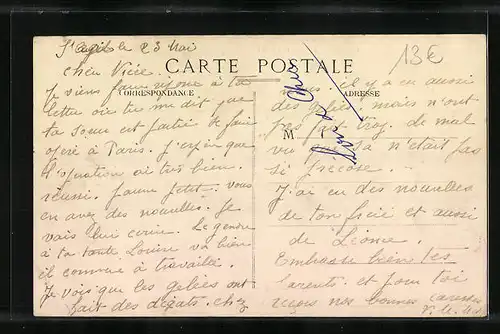 St Agil le 23 Mai
13€
Cher Pierre.
CARTE POSTALE
CORRESPONDANCE
ADRESSE
Je viens faire réponse à ta
lettre où tu me dit que
ta sœur est partie se faire
opéré à Paris. J'espère que
l'opération a très bien
réussi. pauvre petit. vous
en avez des nouvelles. Je
vais lui écrire. Le gendre
à ta tante Louise va bien
il commence à travailler.
Je vois que les gelées ont
fait des dégats. chez
vous. il y a eu aussi
des gelées, mais n'ont
pas fait trop de mal
M
vu que sa n'était pas
si précoce.
J'ai eu des nouvelles
de ton frère et aussi
de Léonce.
Embrasse bien tes
parents. et pour toi
reçois nos bonnes caresses
Loir et Cher